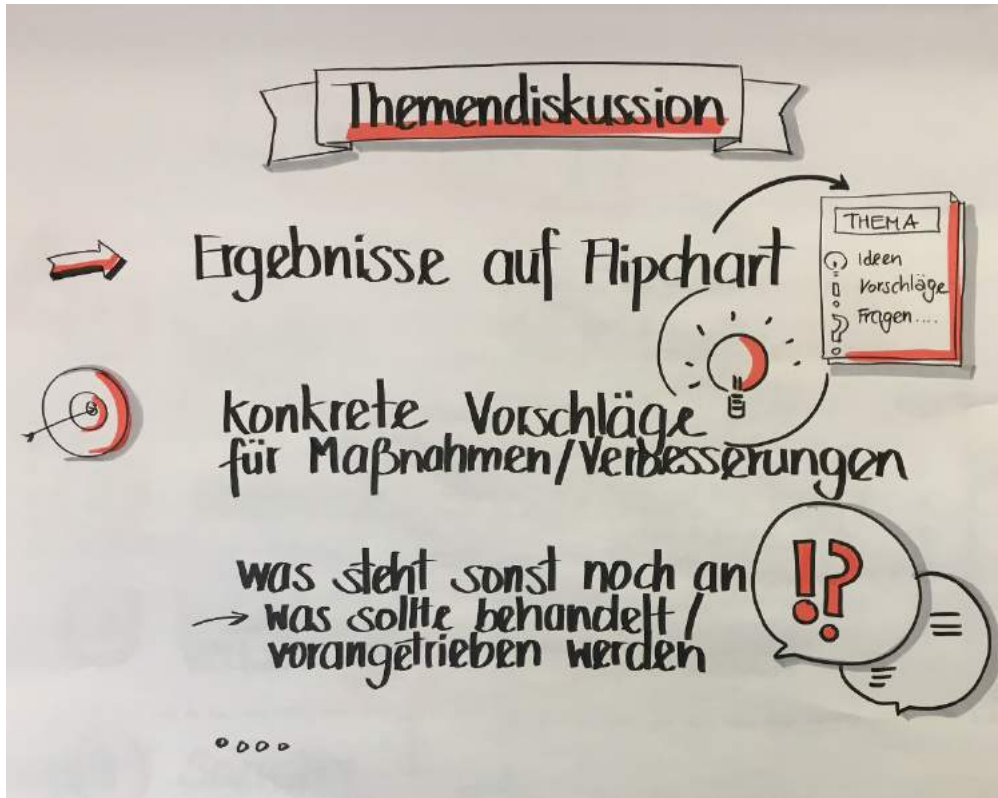 Themendiskussion
Ergebnisse auf Flipchart
THEMA
Ideen
Vorschläge
Fragen....
konkrete Vorschläge
für Maßnahmen/Verbesserungen
!?
was steht sonst noch an
→ was sollte behandelt /
vorangetrieben werden
....